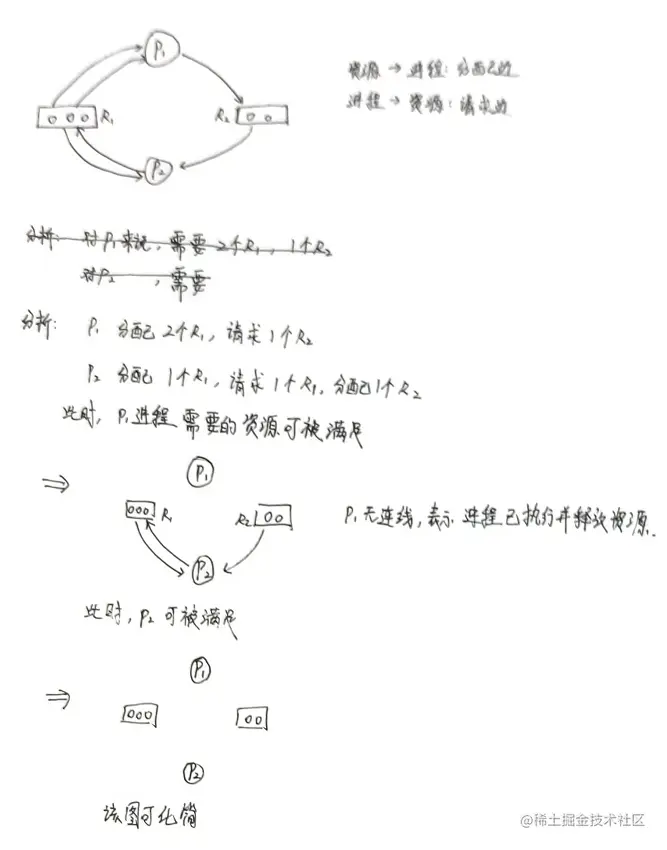 P₁
资源 → 进程：分配边
进程 → 资源：请求边
R₁
R₂
P₂
分析：对P₁来说，需要2个R₁，1个R₂
对P₂，需要
分析：P₁ 分配已2个R₁，请求1个R₂
P₂ 分配已1个R₁，请求1个R₁，分配已1个R₂
此时，P₁进程需要的资源可被满足
⇒
P₁
R₁
R₂
P₁无连线，表示进程已执行并释放资源.
P₂
此时，P₂可被满足
P₁
⇒
P₂
该图可化简
@稀土掘金技术社区